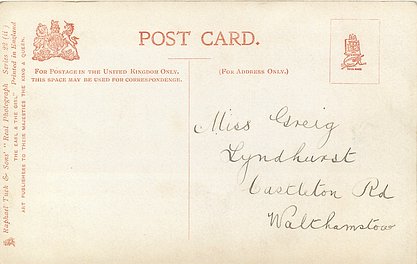 POST CARD.
FOR POSTAGE IN THE UNITED KINGDOM ONLY,
THIS SPACE MAY BE USED FOR CORRESPONDENCE.
(FOR ADDRESS ONLY.)
Miss Greig
Lyndhurst
Castleton Rd
Walthamstow
Raphael Tuck & Sons' "Real Photograph" Series
"THE EARL & THE GIRL." Printed in England
ART PUBLISHERS TO THEIR MAJESTIES THE KING & QUEEN.